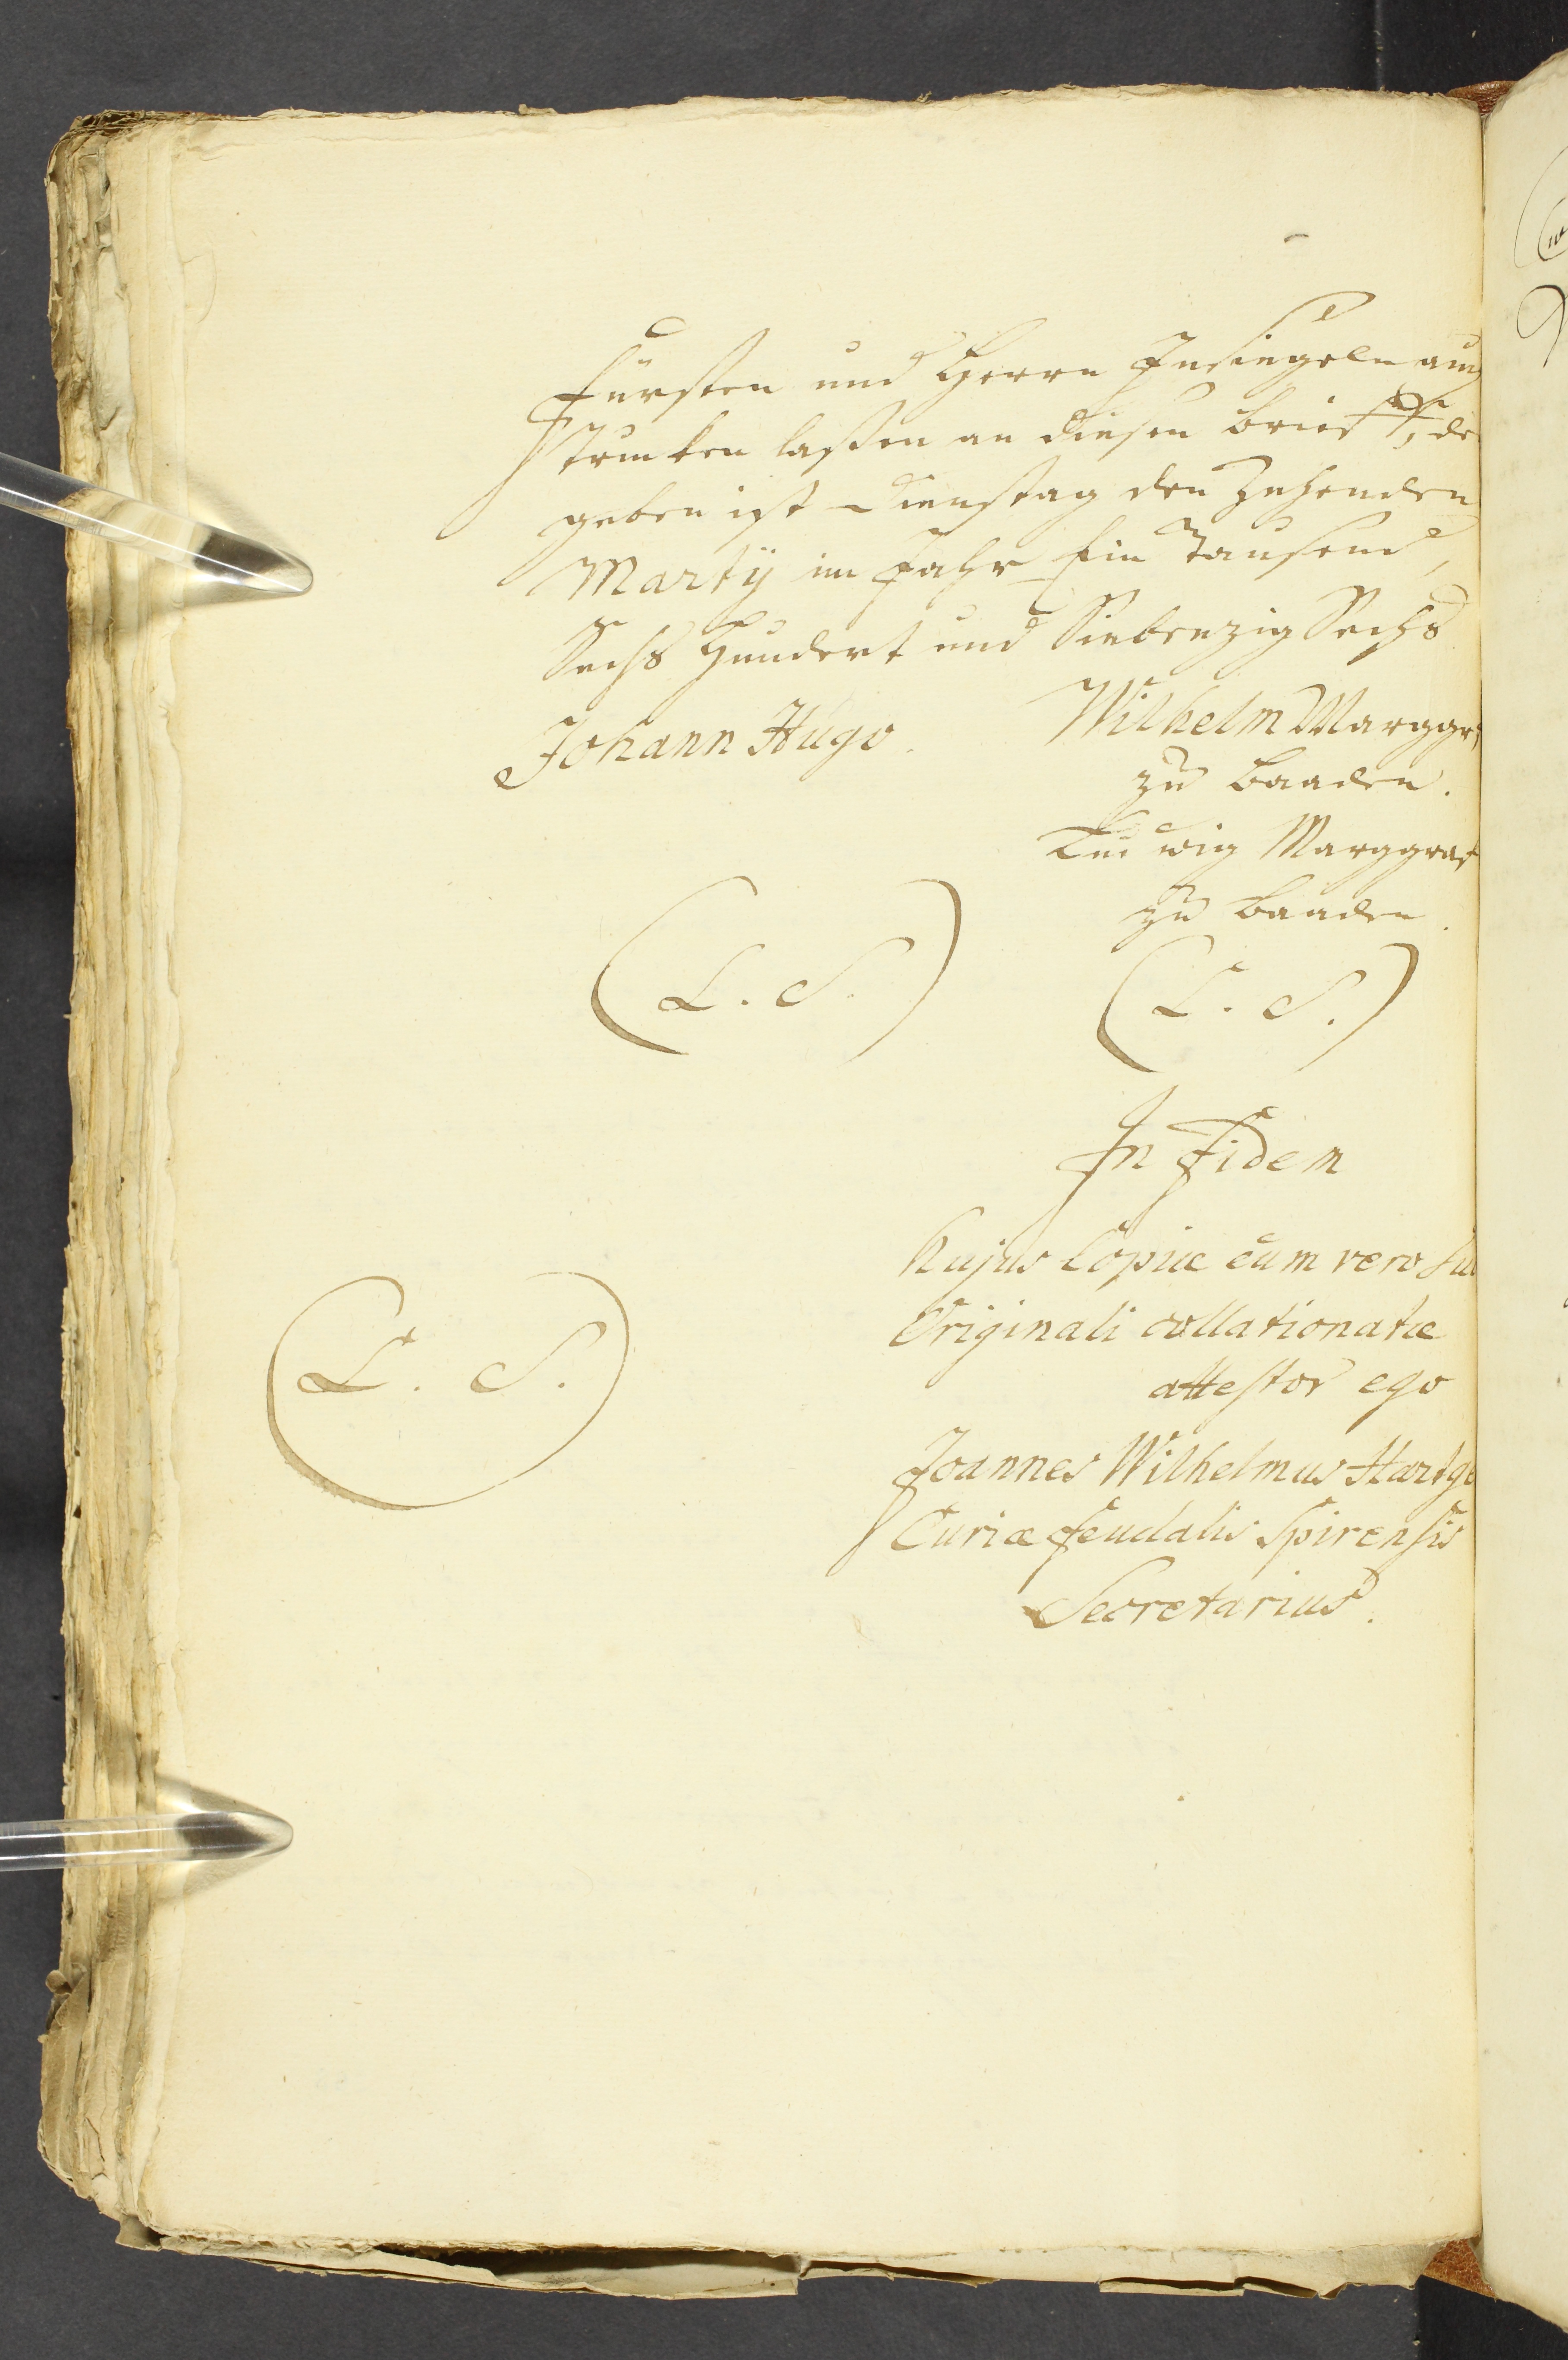 Fürsten und Herrn Insiegeln auch
trucken laßen an diesen brieff, de
geben ist Dienstag den Zehenden
Martÿ im Jahr Ein Tausend,
Sechs Hundert und Siebenzig Sechs
Johann Hugo.
Wilhelm Marggr
zu Baaden.
Ludwig Marggraf
zu Baaden.
(L. S.)
(L. S.)
In Fidem
hujus Copiæ cum vero suo
Originali collationatæ
attestor ego
(L. S.)
Joannes Wilhelmus Hartge
Curiæ feudalis Spirensis
Secretarius.